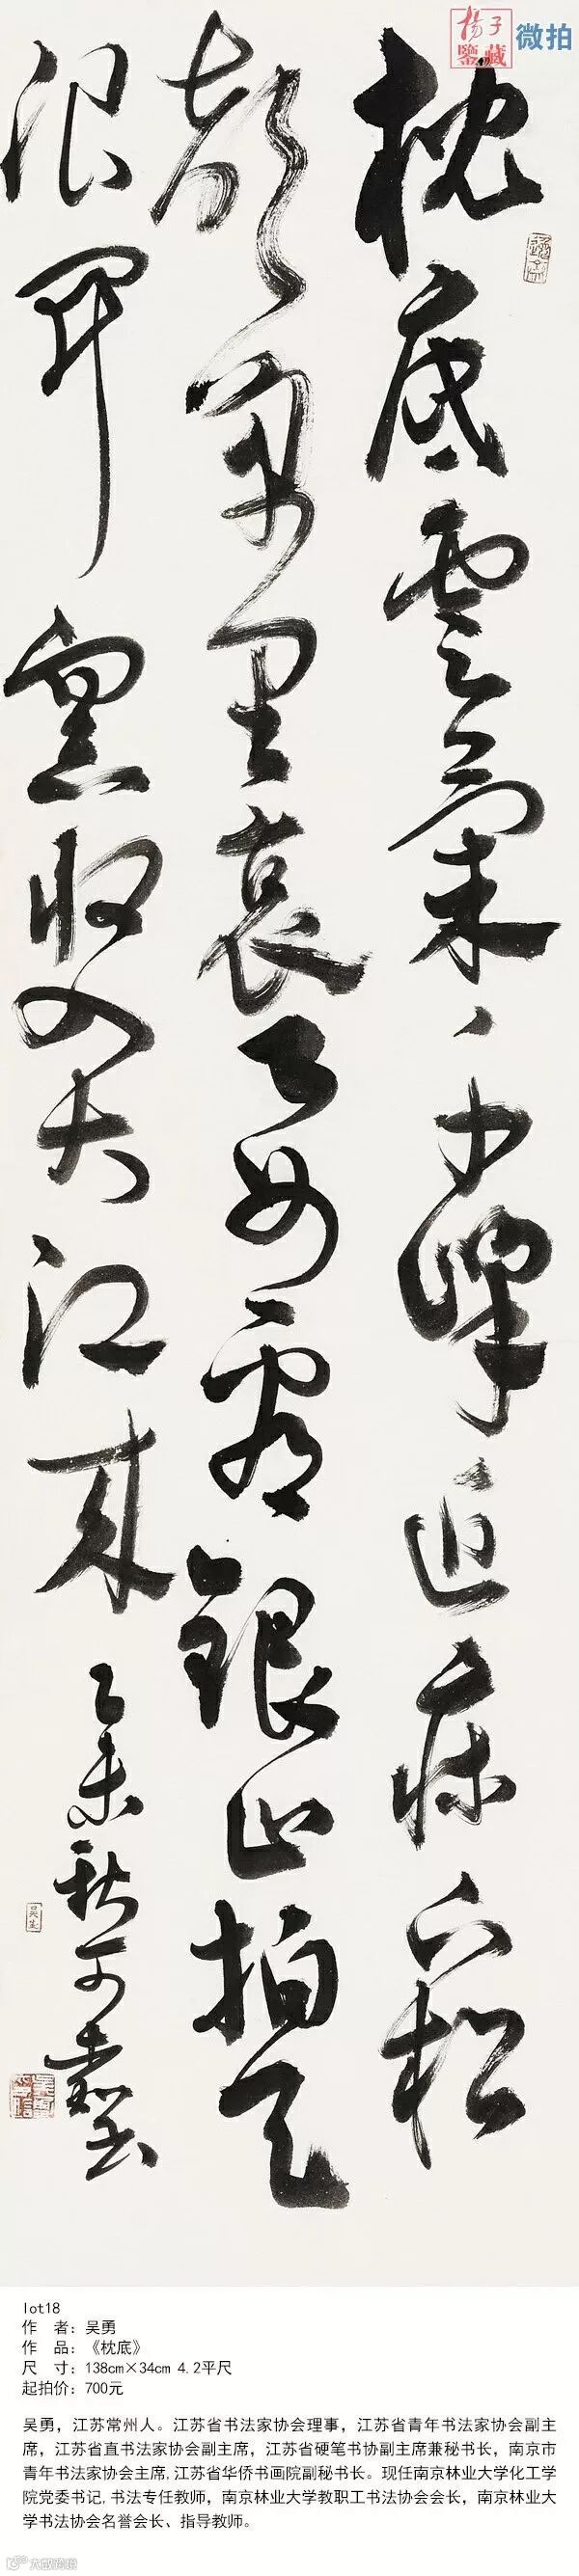 揚子
鑒藏
微拍
枕底雲氣千峰近床下松
聲萬里哀要看銀山拍天
浪開窗收入大江來
乙未秋
書
lot18
作　者：吴勇
作　品：《枕底》
尺　寸：138cm×34cm 4.2平尺
起拍价：700元
吴勇，江苏常州人。江苏省书法家协会理事，江苏省青年书法家协会副主
席，江苏省直书法家协会副主席，江苏省硬笔书协副主席兼秘书长，南京市
青年书法家协会主席,江苏省华侨书画院副秘书长。现任南京林业大学化工学
院党委书记,书法专任教师，南京林业大学教职工书法协会会长，南京林业大
学书法协会名誉会长、指导教师。